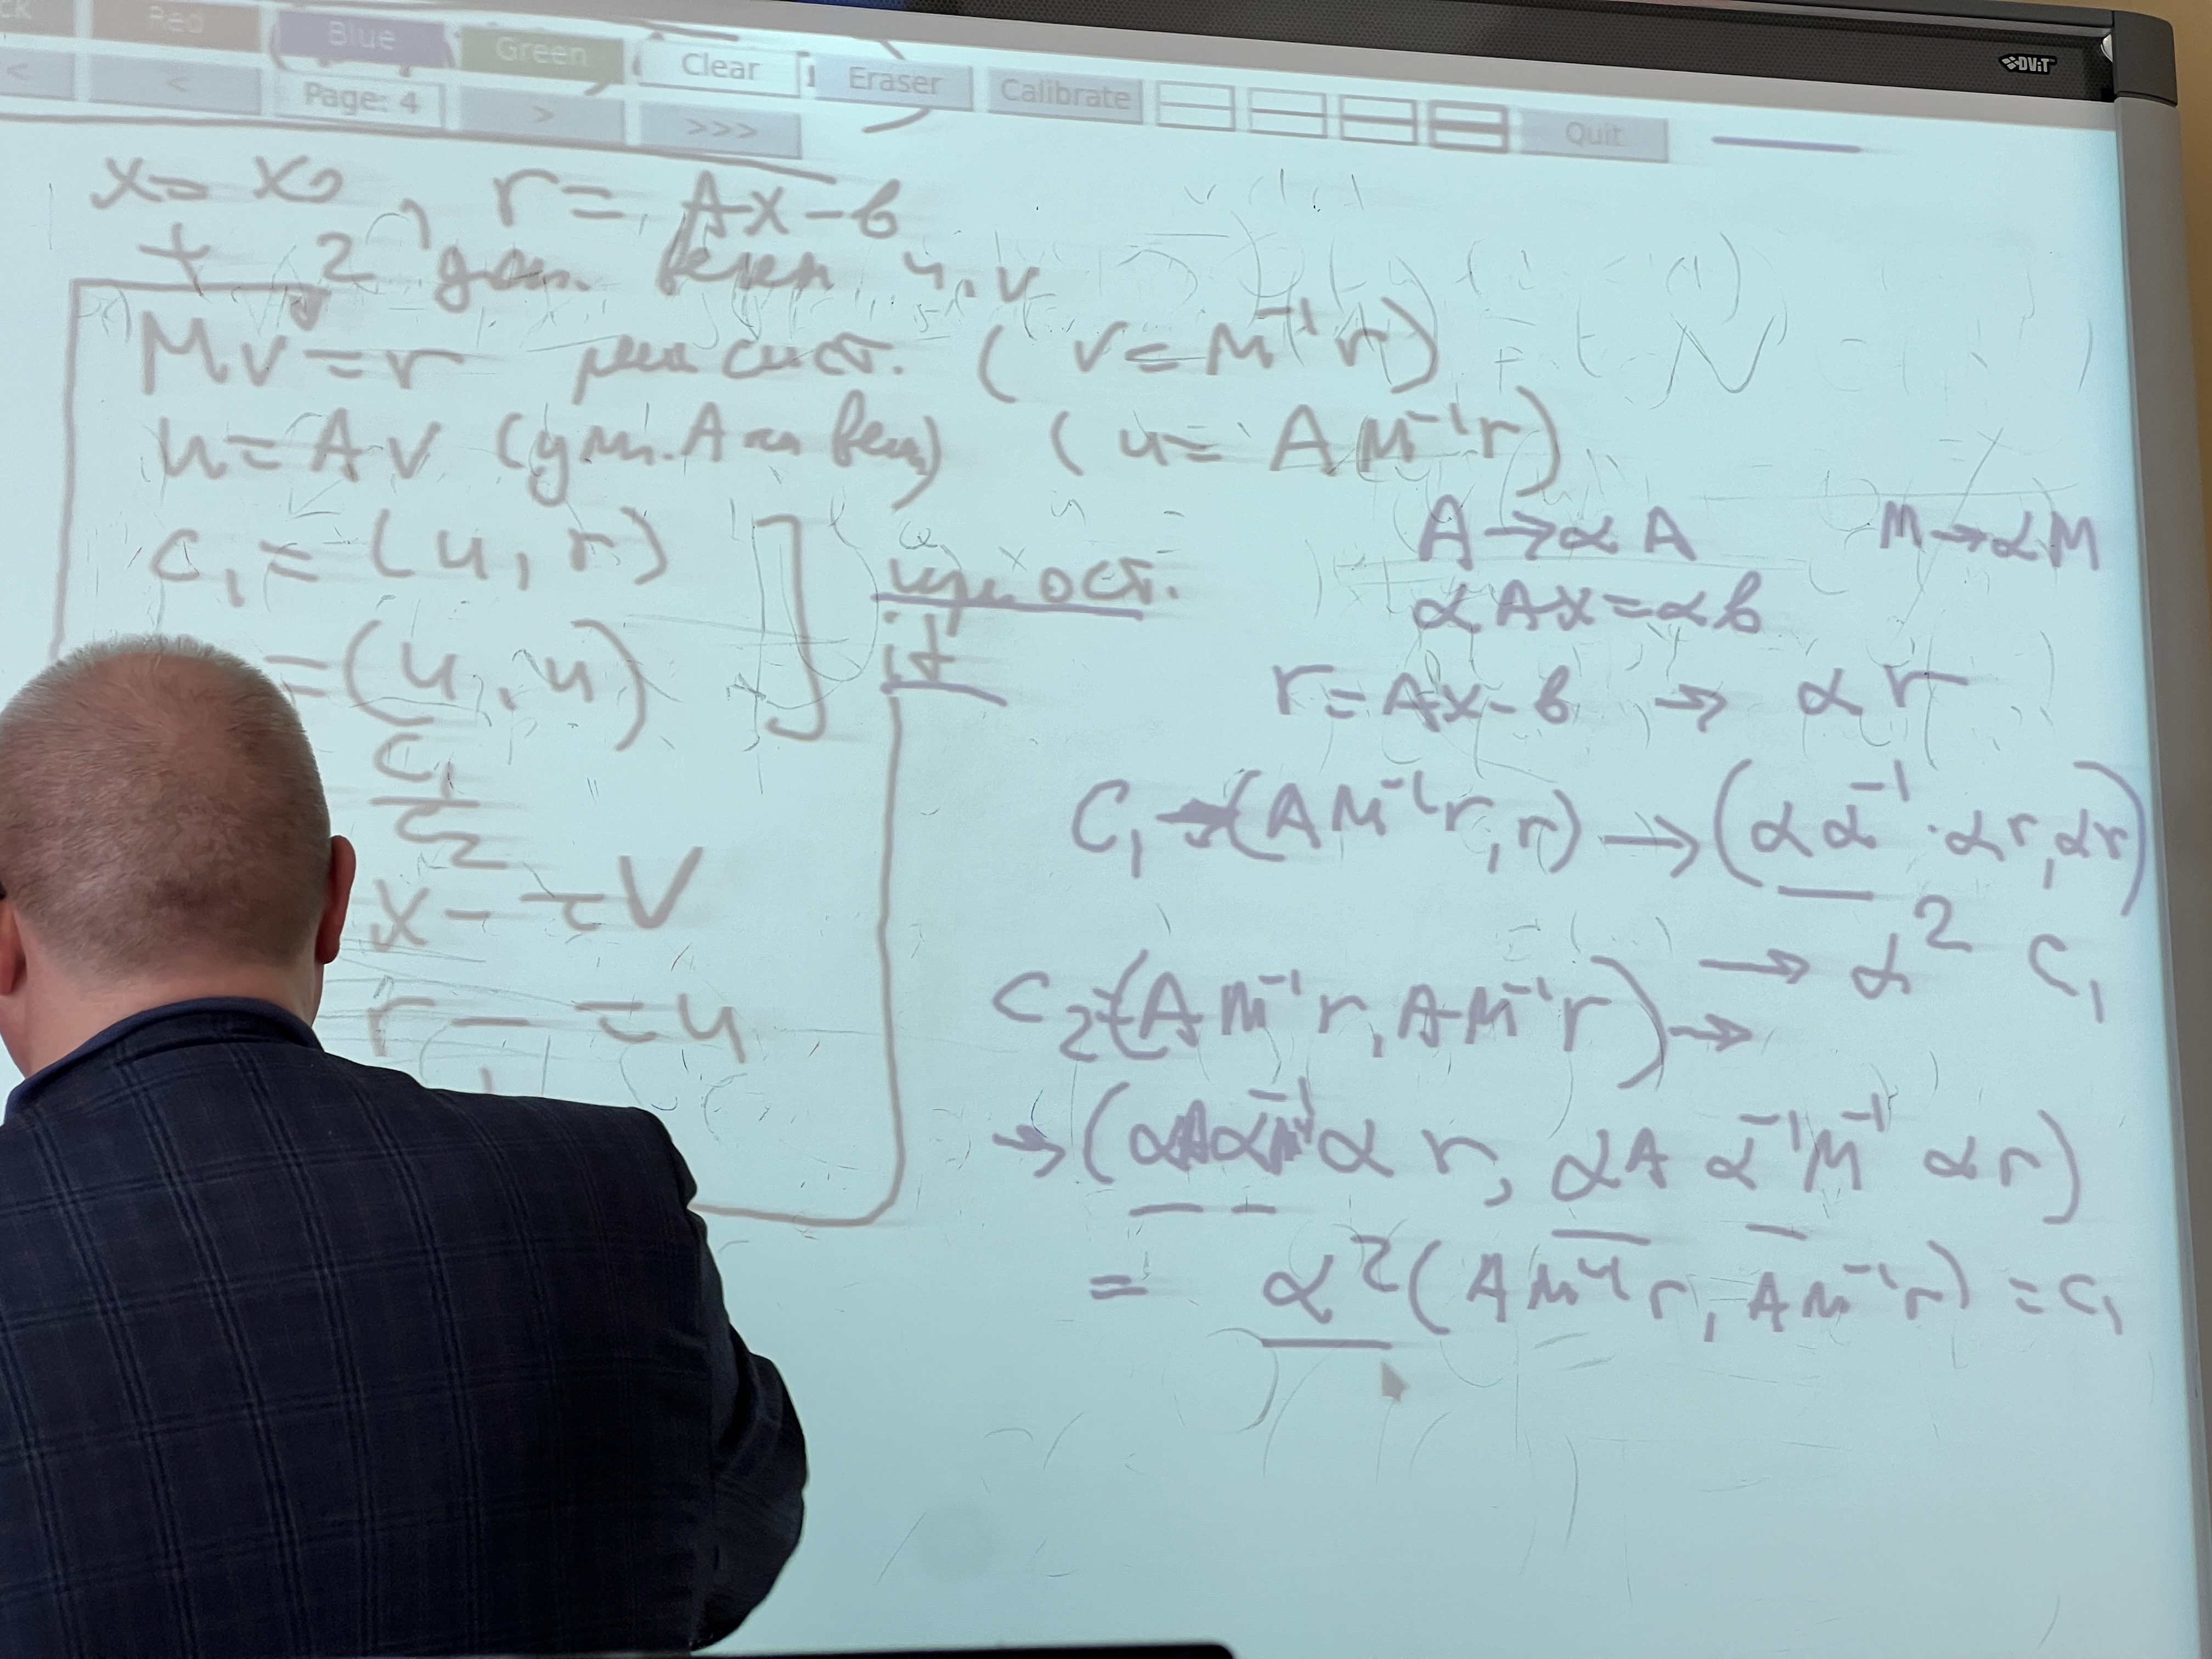 Red Blue Green Clear Eraser Calibrate Quit
< < Page: 4 > >>>
DViT
x = x₀, r = Ax - b
+ 2 доп. вектор u, v
Mv = r реш сист. (v = M⁻¹r)
u = Av (умн. A на век) (u = AM⁻¹r)
c₁ = (u, r)
= (u, u)
при ост.
it
c₁
c₂
x - τv
r - τu
A → αA M → αM
αAx = αb
r = Ax - b → αr
C₁ → (AM⁻¹r, r) → (αα⁻¹·αr, αr)
→ α² C₁
C₂ = (AM⁻¹r, AM⁻¹r) →
→ (αAα⁻¹M⁻¹α r, αA α⁻¹M⁻¹ αr)
= α²(AM⁻¹r, AM⁻¹r) = c₁